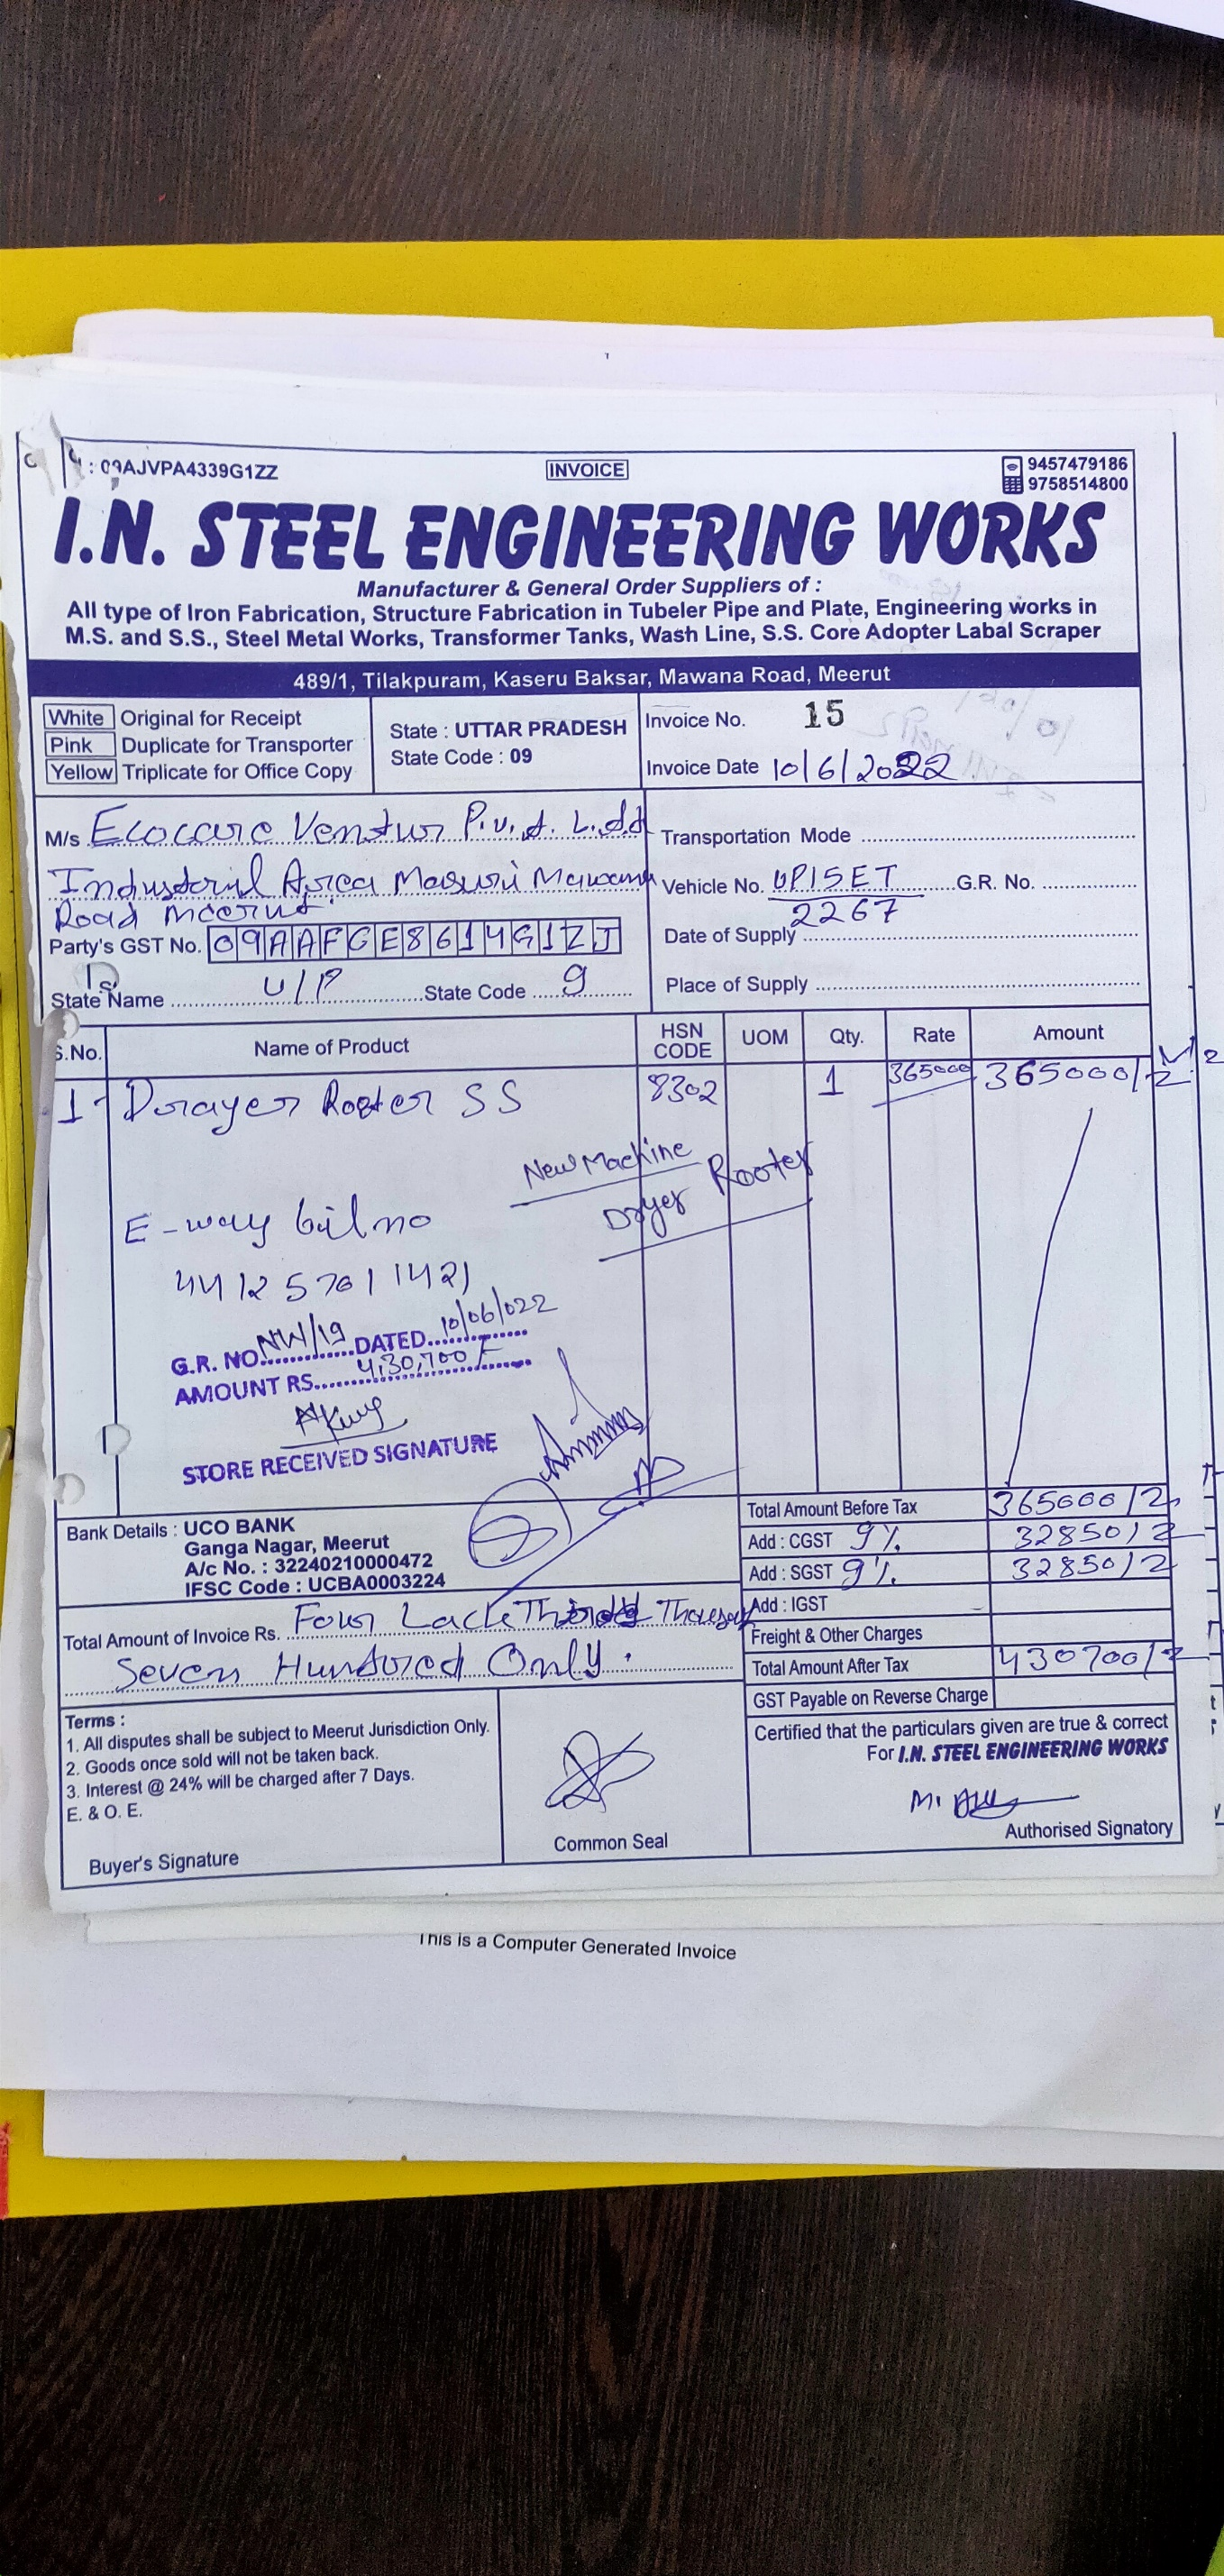 : 09AJVPA4339G1ZZ
INVOICE
9457479186
9758514800
I.N. STEEL ENGINEERING WORKS
Manufacturer & General Order Suppliers of :
All type of Iron Fabrication, Structure Fabrication in Tubeler Pipe and Plate, Engineering works in
M.S. and S.S., Steel Metal Works, Transformer Tanks, Wash Line, S.S. Core Adopter Labal Scraper
489/1, Tilakpuram, Kaseru Baksar, Mawana Road, Meerut
White Original for Receipt
Pink Duplicate for Transporter
Yellow Triplicate for Office Copy
State : UTTAR PRADESH
State Code : 09
Invoice No. 15
Invoice Date 10/6/2022
M/s Ecocare Ventur P.v.t. L.td
Industrial Area Masuri Mawana
Road Meerut
Party's GST No. 09AAFCE8614G1ZJ
State Name U/P State Code 9
Transportation Mode
Vehicle No. UP15ET G.R. No.
2267
Date of Supply
Place of Supply
S.No. Name of Product HSN CODE UOM Qty. Rate Amount
1- Drayer Rooter SS 8302 1 365000 365000/=
New Machine
Dryer Rooter
E-way bil no
441257611421
G.R. NO. NW/19 DATED 10/06/022
AMOUNT RS. 4,30,700
STORE RECEIVED SIGNATURE
Bank Details : UCO BANK
Ganga Nagar, Meerut
A/c No. : 32240210000472
IFSC Code : UCBA0003224
Total Amount Before Tax 365000/=
Add : CGST 9% 32850/=
Add : SGST 9% 32850/=
Add : IGST
Freight & Other Charges
Total Amount After Tax 430700/=
GST Payable on Reverse Charge
Total Amount of Invoice Rs. Four Lack
Seven Hundored Only.
Terms :
1. All disputes shall be subject to Meerut Jurisdiction Only.
2. Goods once sold will not be taken back.
3. Interest @ 24% will be charged after 7 Days.
E. & O. E.
Buyer's Signature
Common Seal
Certified that the particulars given are true & correct
For I.N. STEEL ENGINEERING WORKS
Authorised Signatory
This is a Computer Generated Invoice